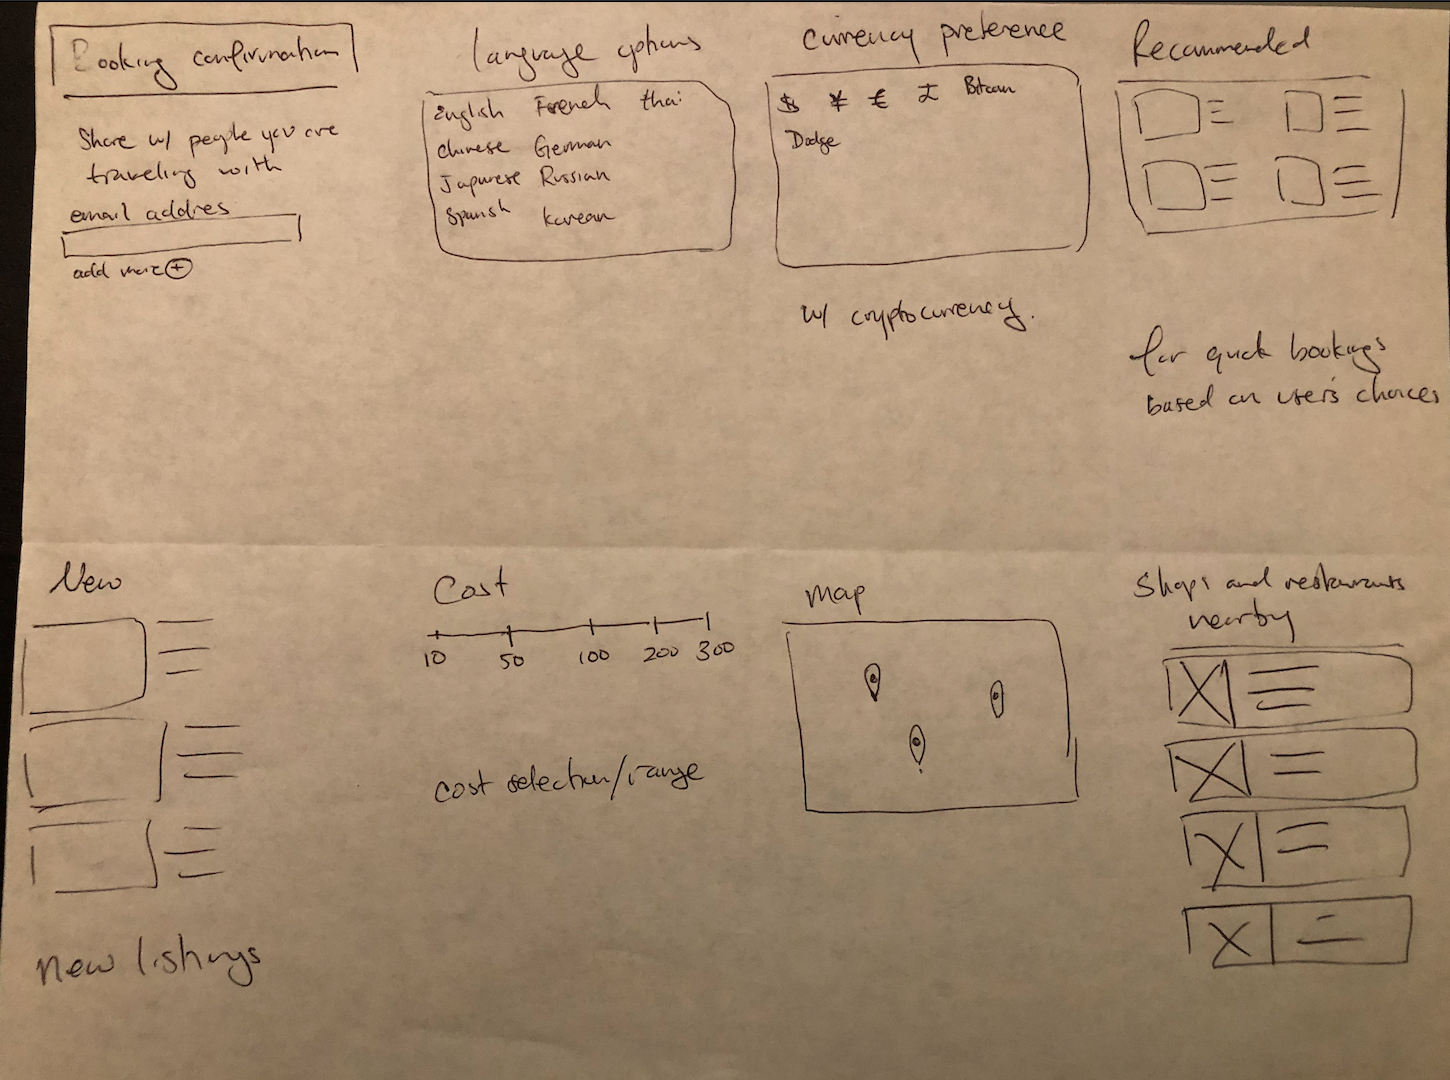 Booking confirmation
Share w/ people you are
traveling with
email addres
add more +
language options
English French thai
chinese German
Japanese Russian
Spanish Korean
currency preference
$ ¥ € £ Bitcoin
Dodge
w/ cryptocurrency.
Recommended
for quick bookings
based on user's choices
New
new listings
Cost
10 50 100 200 300
cost selection/range
map
Shops and restaurants
nearby